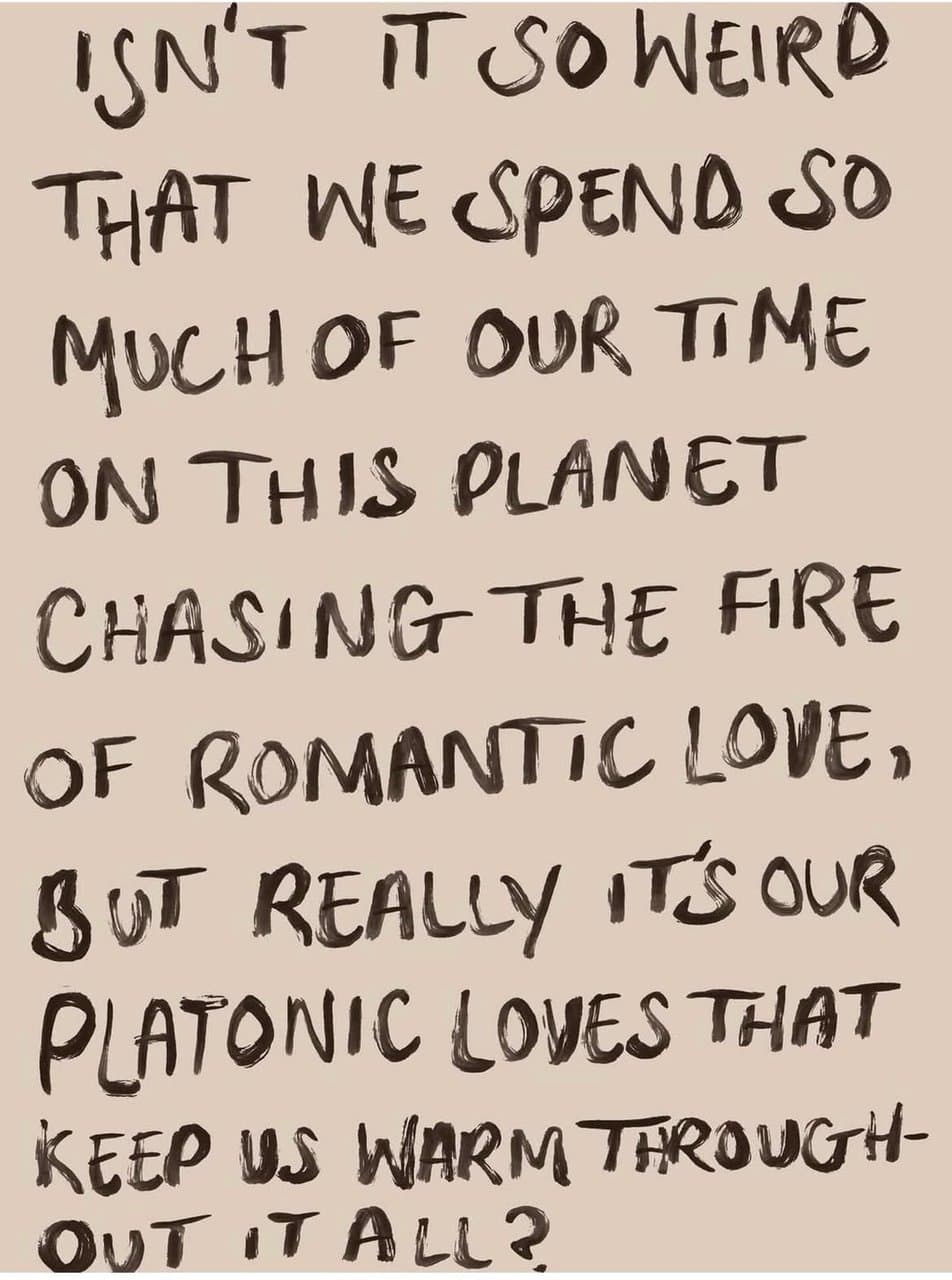 ISN'T IT SO WEIRD
THAT WE SPEND SO
MUCH OF OUR TIME
ON THIS PLANET
CHASING THE FIRE
OF ROMANTIC LOVE,
BUT REALLY IT'S OUR
PLATONIC LOVES THAT
KEEP US WARM THROUGH-
OUT IT ALL?